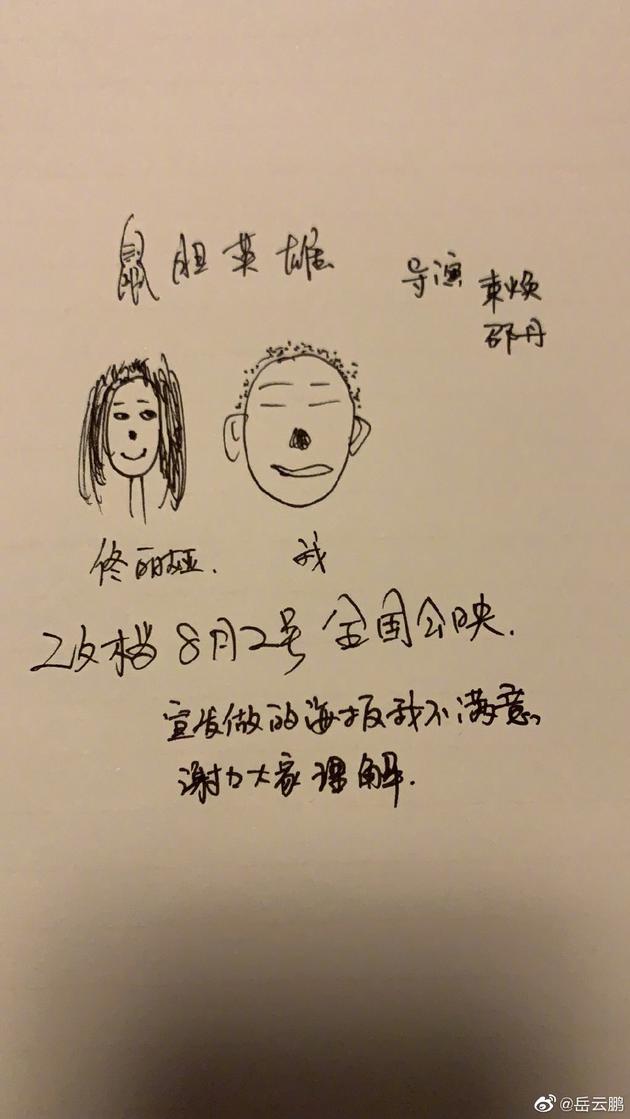 鼠胆英雄
导演 束焕
邵丹
佟丽娅. 我
改档8月2号全国公映.
宣发做的海报我不满意。
谢谢大家理解.
@岳云鹏